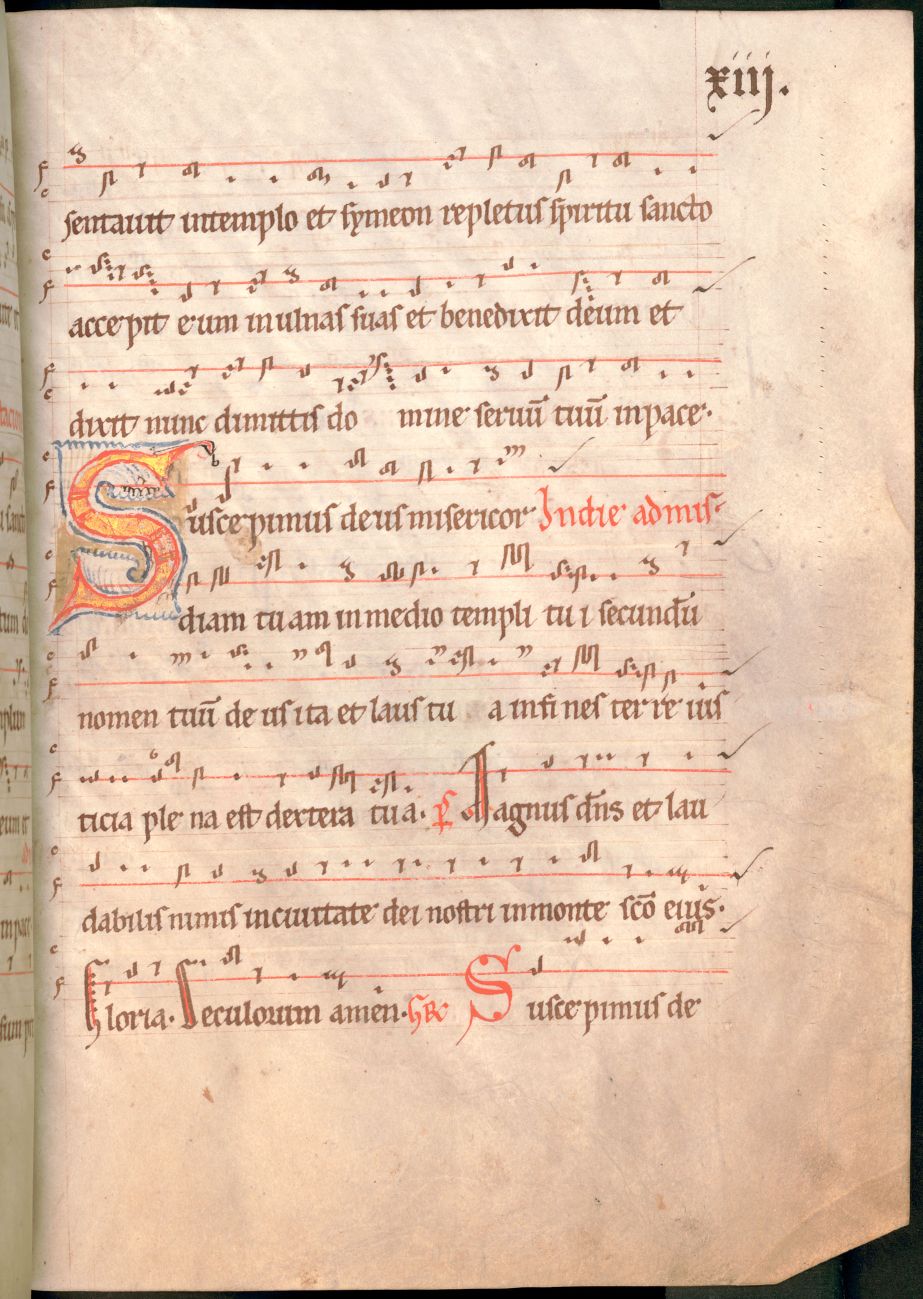 xiij.
sentauit intemplo et symeon repletus spiritu sancto
accepit eum inulnas suas et benedixit deum et
dixit nunc dimittis do mine seruū tuū inpace.
Suscepimus deus misericor Indie admis.
diam tuam inmedio templi tui secundū
nomen tuū deus ita et laus tu a infines terre ius
ticia plena est dextera tua. Magnus dn̄s et lau
dabilis nimis inciuitate dei nostri inmonte scō eius.
Gloria. Seculorum amen. Suscepimus de